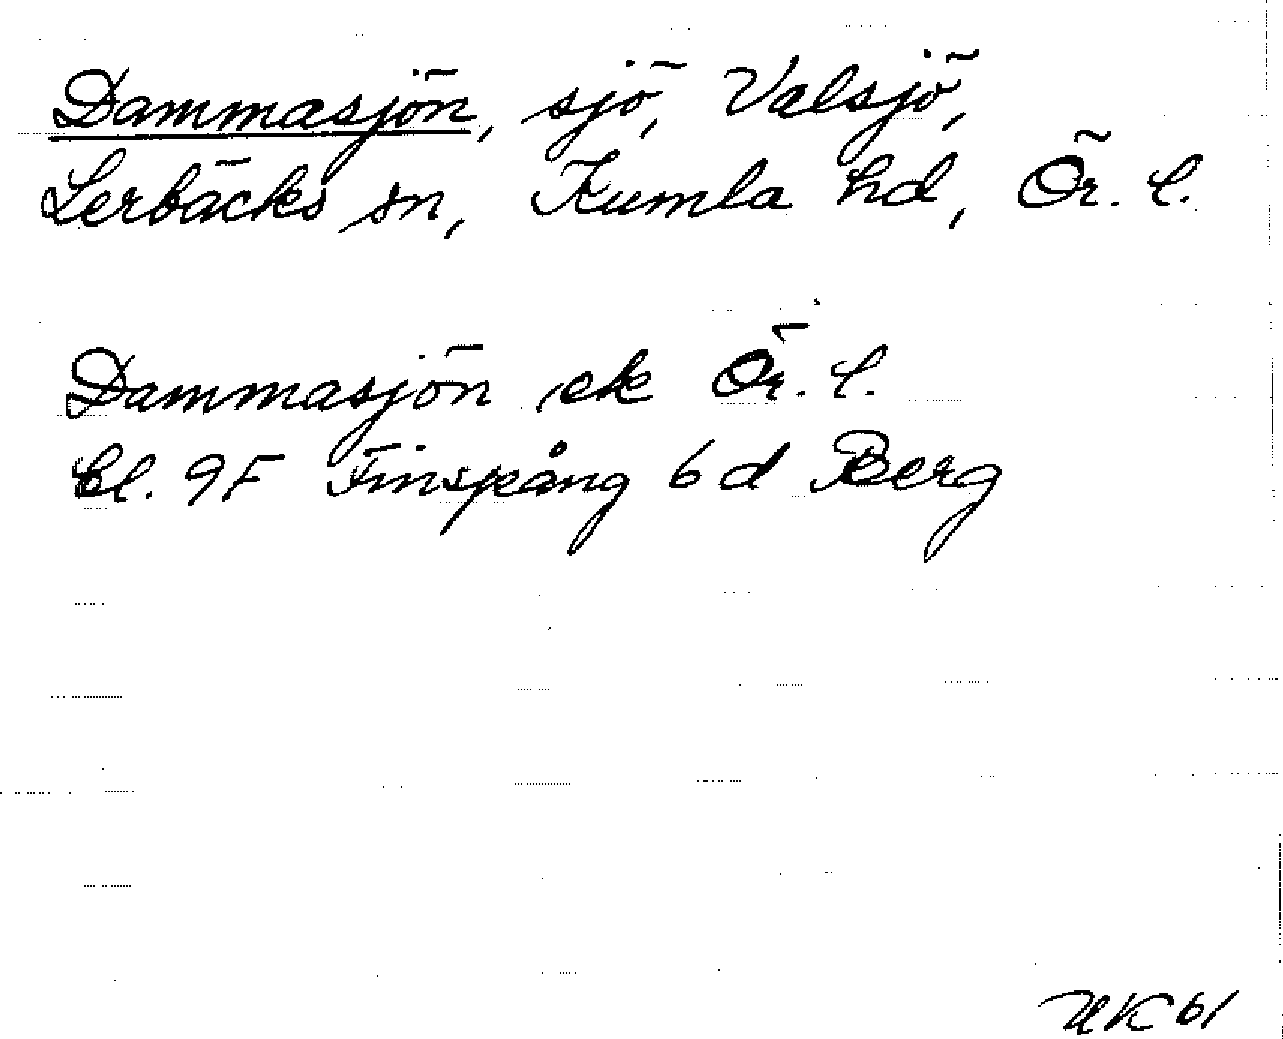 Dammasjön, sjö, Valsjö,
Lerbäcks sn, Kumla hd, Ör. l.
Dammasjön ek Ör. l.
bl. 9F Finspång 6 d Berg
UK 61